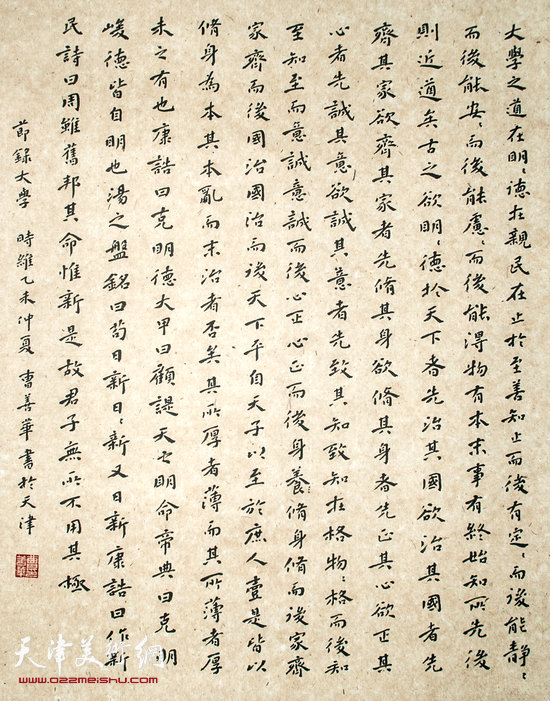 大學之道在明〻德在親民在止於至善知止而後有定〻而後能靜〻
而後能安〻而後能慮〻而後能得物有本末事有終始知所先後
則近道矣古之欲明〻德於天下者先治其國欲治其國者先
齊其家欲齊其家者先脩其身欲脩其身者先正其心欲正其
心者先誠其意欲誠其意者先致其知致知在格物〻格而後知
至知至而意誠意誠而後心正心正而後身養脩身脩而後家齊
家齊而後國治國治而後天下平自天子以至於庶人壹是皆以
脩身為本其本亂而末治者否矣其所厚者薄而其所薄者厚
未之有也康誥曰克明德大甲曰顧諟天之明命帝典曰克明
峻德皆自明也湯之盤銘曰苟日新日〻新又日新康誥曰作新
民詩曰周雖舊邦其命惟新是故君子無所不用其極
節錄大學 時維乙未仲夏 曹善華書於天津
天津美術網
www.022meishu.com